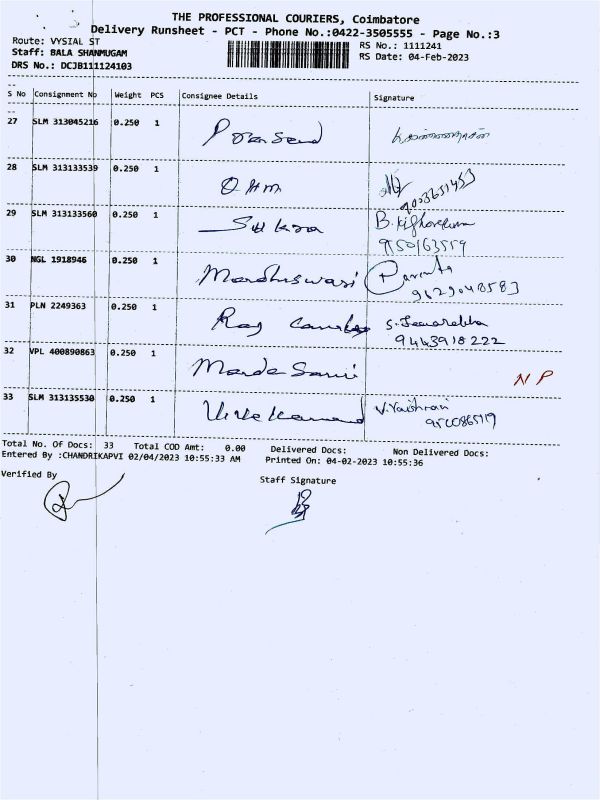 THE PROFESSIONAL COURIERS, Coimbatore
Delivery Runsheet - PCT - Phone No.:0422-3505555 - Page No.:3
Route: VYSIAL ST
RS No.: 1111241
Staff: BALA SHANMUGAM
RS Date: 04-Feb-2023
DRS No.: DCJB111124103
S No Consignment No Weight PCS Consignee Details Signature
27 SLM 313045216 0.250 1
28 SLM 313133539 0.250 1
29 SLM 313133560 0.250 1 B.
9150163559
30 NGL 1918946 0.250 1
9629048583
31 PLN 2249363 0.250 1 Raj
9443918222
32 VPL 400890863 0.250 1 NP
33 SLM 313135530 0.250 1 V.
Total No. Of Docs: 33 Total COD Amt: 0.00 Delivered Docs: Non Delivered Docs:
Entered By :CHANDRIKAPVI 02/04/2023 10:55:33 AM Printed On: 04-02-2023 10:55:36
Verified By
Staff Signature